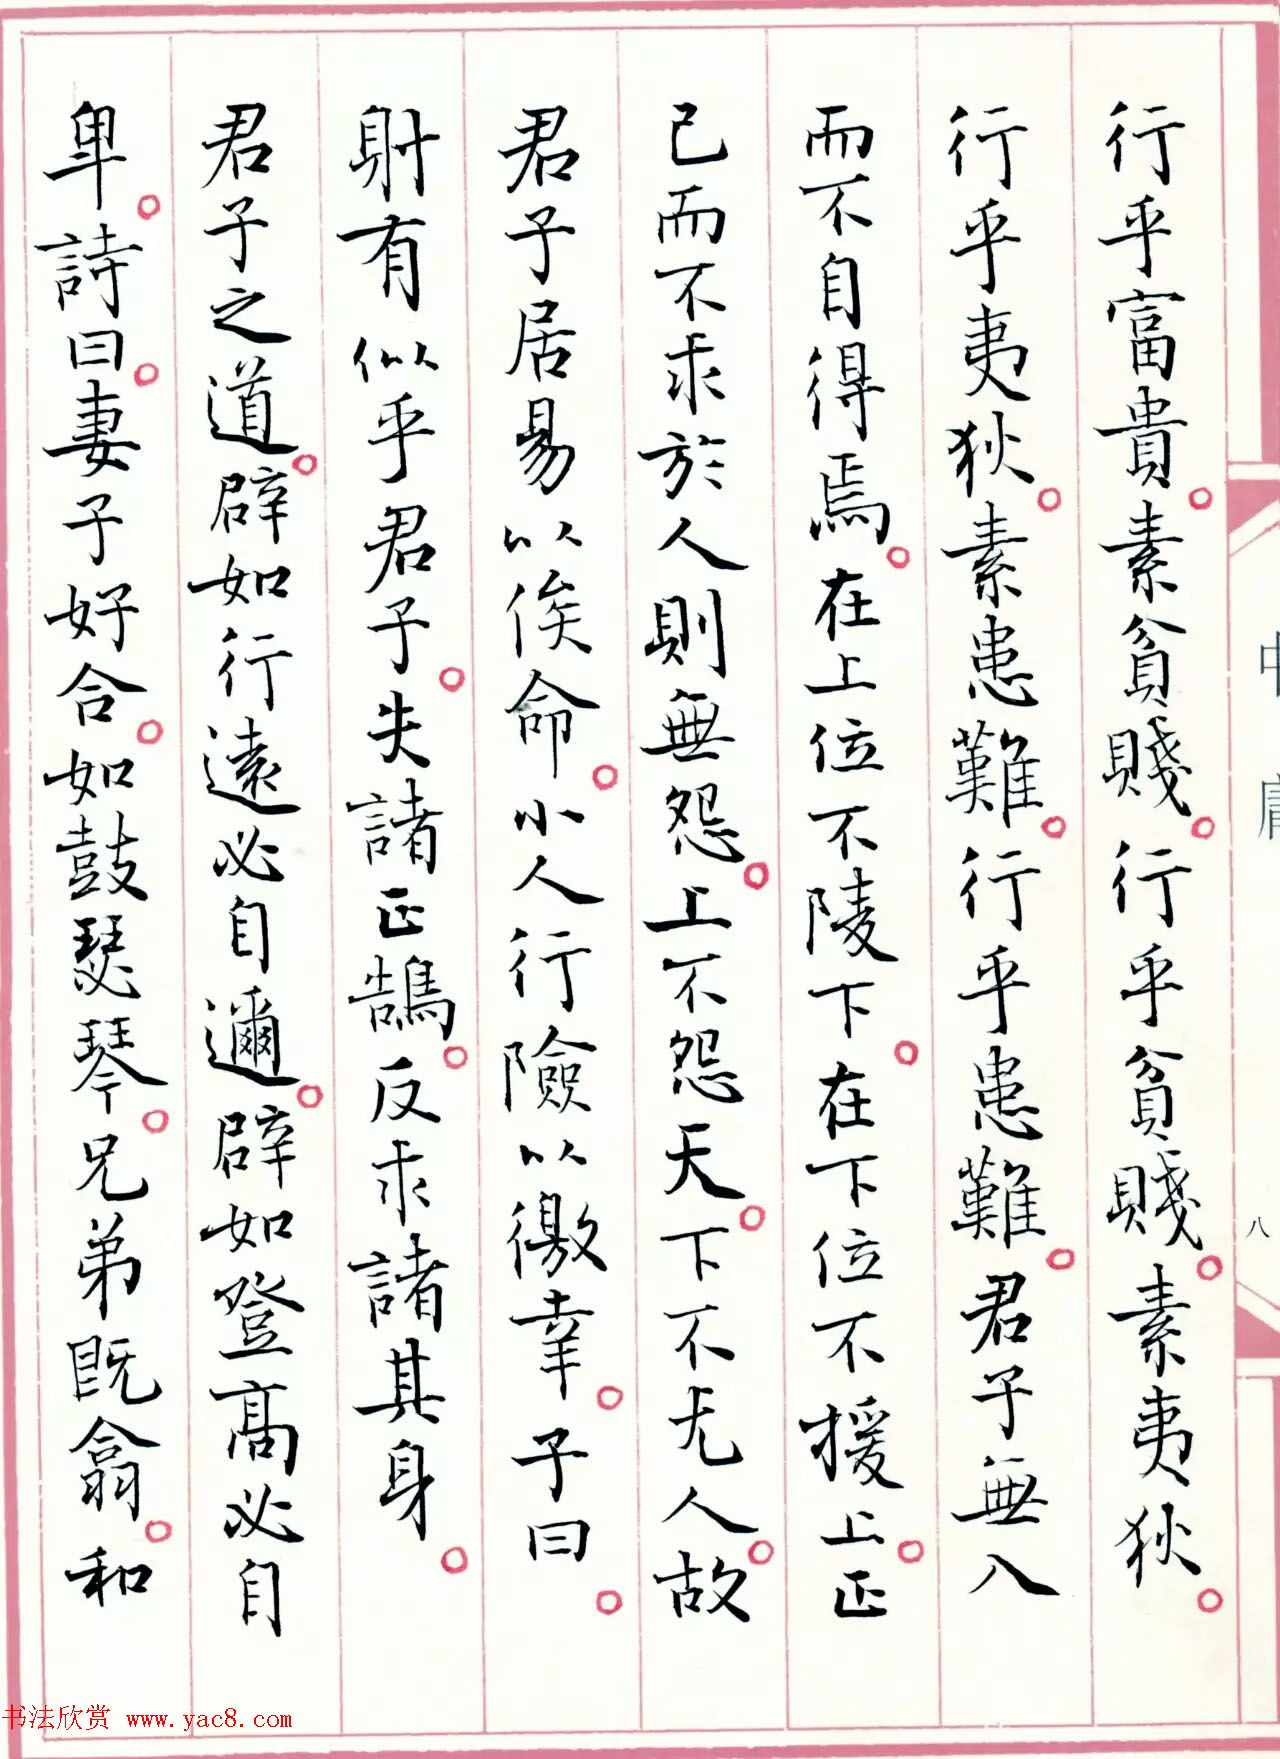 行乎富貴。素貧賤。行乎貧賤。素夷狄。
行乎夷狄。素患難。行乎患難。君子無入
而不自得焉。在上位不陵下。在下位不援上。正
己而不求於人則無怨。上不怨天。下不尤人。故
君子居易以俟命。小人行險以徼幸。子曰。
射有似乎君子。失諸正鵠。反求諸其身。
君子之道。辟如行遠必自邇。辟如登高必自
卑。詩曰。妻子好合。如鼓瑟琴。兄弟既翕。和
中庸
八
书法欣赏 www.yac8.com